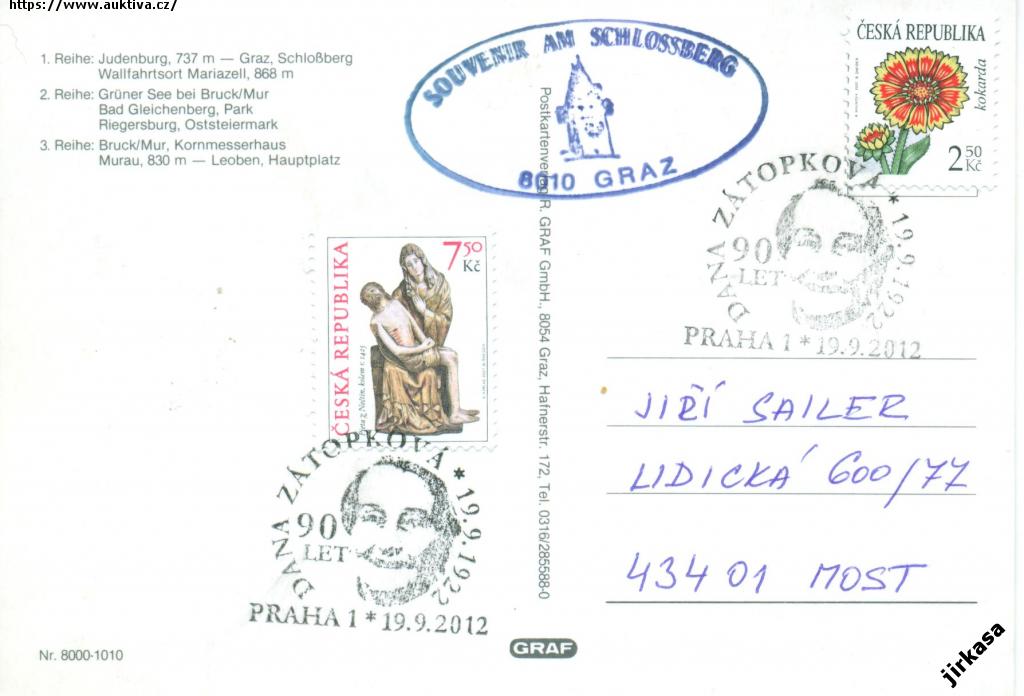 https://www.auktiva.cz/
1. Reihe: Judenburg, 737 m — Graz, Schloßberg
Wallfahrtsort Mariazell, 868 m
2. Reihe: Grüner See bei Bruck/Mur
Bad Gleichenberg, Park
Riegersburg, Oststeiermark
3. Reihe: Bruck/Mur, Kornmesserhaus
Murau, 830 m — Leoben, Hauptplatz
SOUVENIR AM SCHLOSSBERG
8010 GRAZ
ČESKÁ REPUBLIKA
kokarda
2 50 Kč
DANA ZÁTOPKOVÁ * 19.9.1922
90
LET
PRAHA 1 * 19.9.2012
Postkartenverlag R. GRAF GmbH., 8054 Graz, Hafnerstr. 172, Tel. 0316/285588-0
ČESKÁ REPUBLIKA
7 50
Kč
Pieta z Nečtin, kolem r. 1425
DANA ZÁTOPKOVÁ * 19.9.1922
90
LET
PRAHA 1 * 19.9.2012
JIŘÍ SAILER
LIDICKÁ 600/77
434 01 MOST
Nr. 8000-1010
GRAF
jirkasa